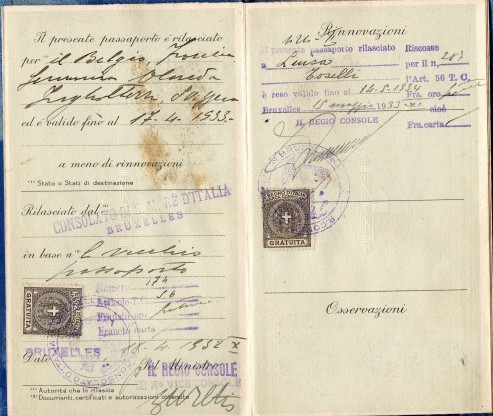 Il presente passaporto è rilasciato
per il Belgio, Francia
Germania Olanda
Inghilterra, Svizzera
ed è valido fino al 17-4-1933-
a meno di rinnovazioni
(1) Stato o Stati di destinazione
Rilasciato dal (1)
CONSOLATO DI S.M. IL RÈ D'ITALIA
BRUXELLES
in base a (2) vecchio
passaporto
Numero 174
Articolo T.C. 56
Franchi oro
Franchi carta
GRATUITA
BRUXELLES
Dato 18-4-1932 X
Pel Ministro
IL REGIO CONSOLE
(1) Autorità che lo rilascia
(2) Documenti, certificati e autorizzazioni ottenute
Rinnovazioni
Il presente passaporto rilasciato
a Luisa
Toselli
è reso valido fino al 14-5-1934
Bruxelles 15 maggio 1933-XI
IL REGIO CONSOLE
Riscosse
per il n. 203
l'Art. 56 T.C.
Frs. oro
cioè
Frs. carta
GRATUITA
Osservazioni